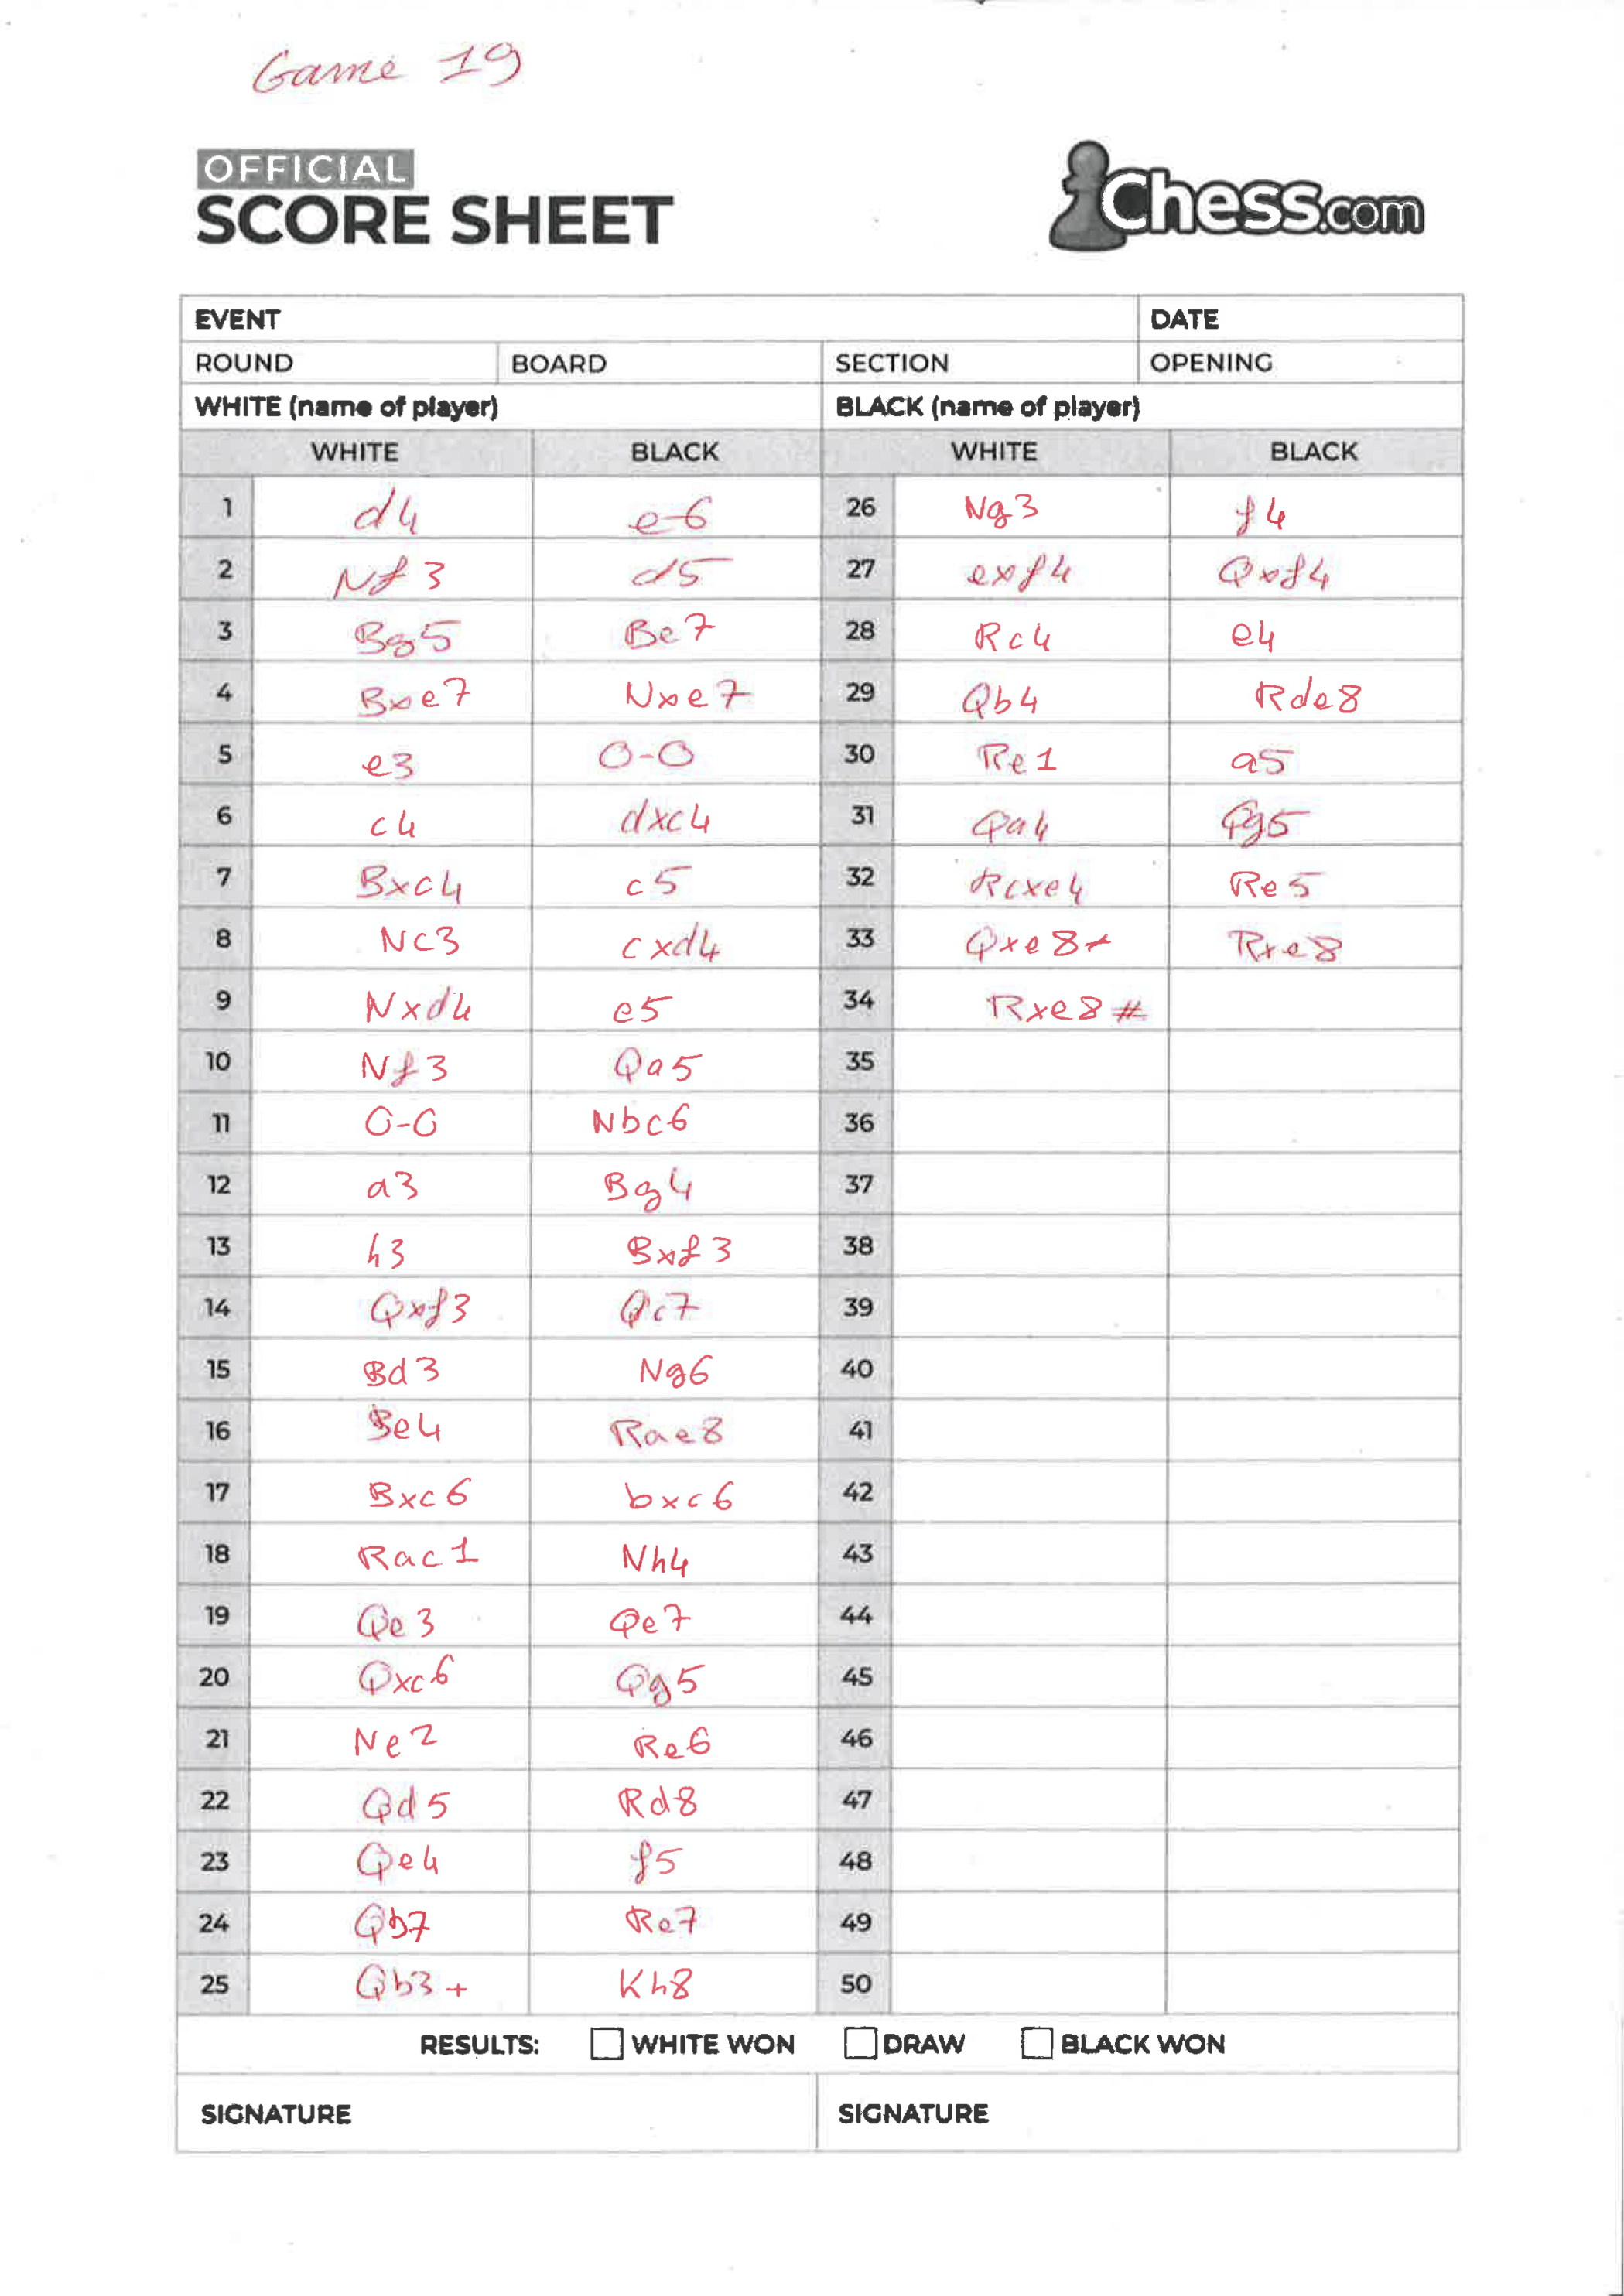 Game 19
OFFICIAL
SCORE SHEET
Chess.com
EVENT DATE
ROUND BOARD SECTION OPENING
WHITE (name of player) BLACK (name of player)
WHITE BLACK WHITE BLACK
1 d4 e6 26 Ng3 f4
2 Nf3 d5 27 exf4 Qxf4
3 Bg5 Be7 28 Rc4 e4
4 Bxe7 Nxe7 29 Qb4 Rde8
5 e3 0-0 30 Re1 a5
6 c4 dxc4 31 Qa4 Qg5
7 Bxc4 c5 32 Rcxe4 Re5
8 Nc3 cxd4 33 Qxe8+ Rxe8
9 Nxd4 e5 34 Rxe8#
10 Nf3 Qa5 35
11 0-0 Nbc6 36
12 a3 Bg4 37
13 h3 Bxf3 38
14 Qxf3 Qc7 39
15 Bd3 Ng6 40
16 Be4 Rae8 41
17 Bxc6 bxc6 42
18 Rac1 Nh4 43
19 Qe3 Qe7 44
20 Qxc6 Qg5 45
21 Ne2 Re6 46
22 Qd5 Rd8 47
23 Qe4 f5 48
24 Qb7 Re7 49
25 Qb3+ Kh8 50
RESULTS: WHITE WON DRAW BLACK WON
SIGNATURE SIGNATURE